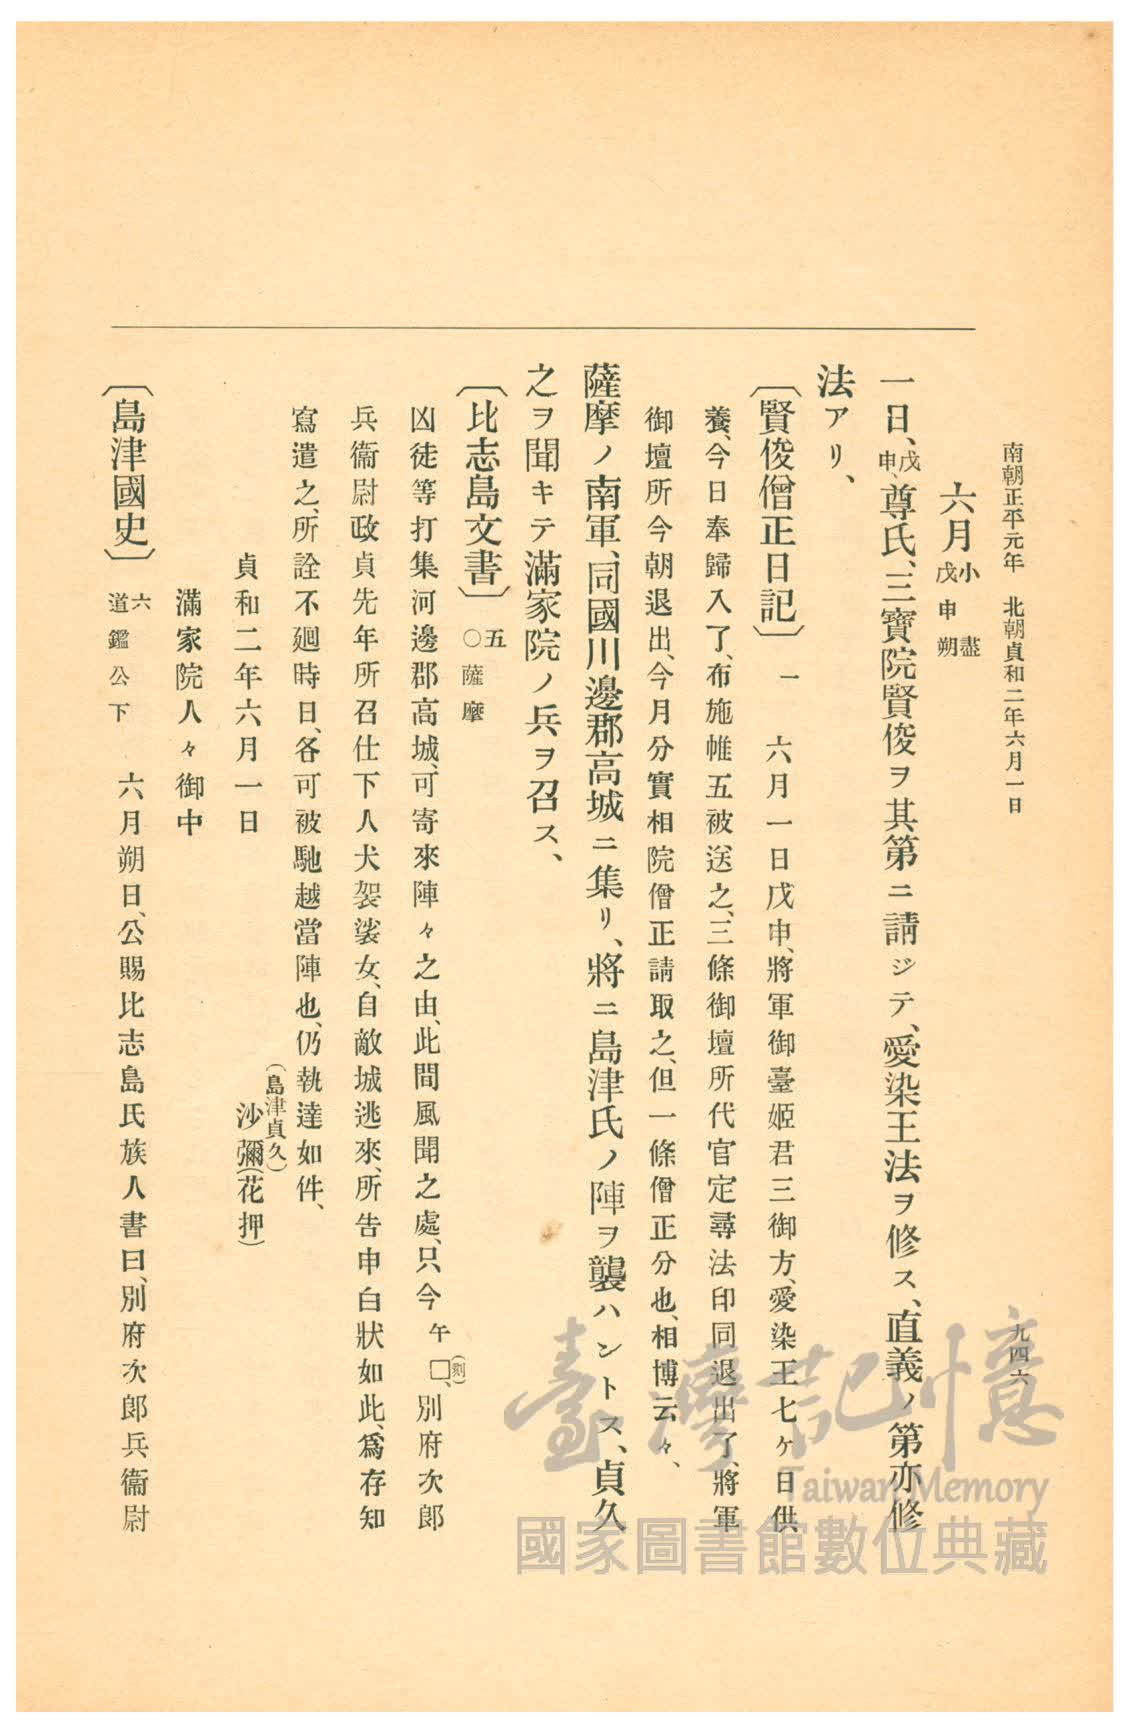 南朝正平元年　北朝貞和二年六月一日
九四六
六月小盡戊申朔
一日、戊申、尊氏、三寶院賢俊ヲ其第ニ請ジテ、愛染王法ヲ修ス、直義ノ第亦修
法アリ、
〔賢俊僧正日記〕　一　六月一日戊申、將軍御臺姬君三御方、愛染王七ケ日供
養、今日奉歸入了、布施帷五被送之、三條御壇所代官定尋法印同退出了、將軍
御壇所今朝退出、今月分實相院僧正請取之、但一條僧正分也、相博云々、
薩摩ノ南軍、同國川邊郡高城ニ集リ、將ニ島津氏ノ陣ヲ襲ハントス、貞久
之ヲ聞キテ滿家院ノ兵ヲ召ス、
〔比志島文書〕五〇薩摩
凶徒等打集河邊郡高城、可寄來陣々之由、此間風聞之處、只今午□(刻)、別府次郎
兵衞尉政貞先年所召仕下人犬袈裟女、自敵城逃來、所告申白狀如此、爲存知
寫遣之、所詮不廻時日、各可被馳越當陣也、仍執達如件、
貞和二年六月一日　沙彌(花押)
(島津貞久)
滿家院人々御中
〔島津國史〕六道鑑公下　六月朔日、公賜比志島氏族人書曰、別府次郎兵衞尉
臺灣記憶
Taiwan Memory
國家圖書館數位典藏